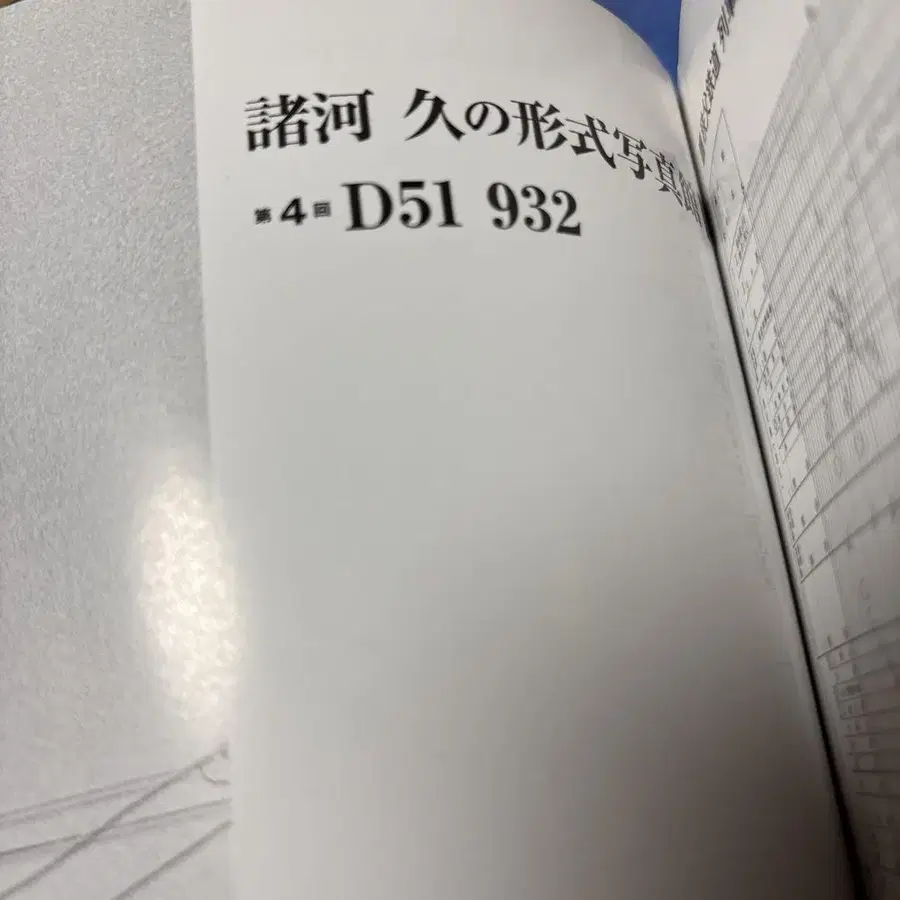 諸河 久の形式写真
第4回 D51 932